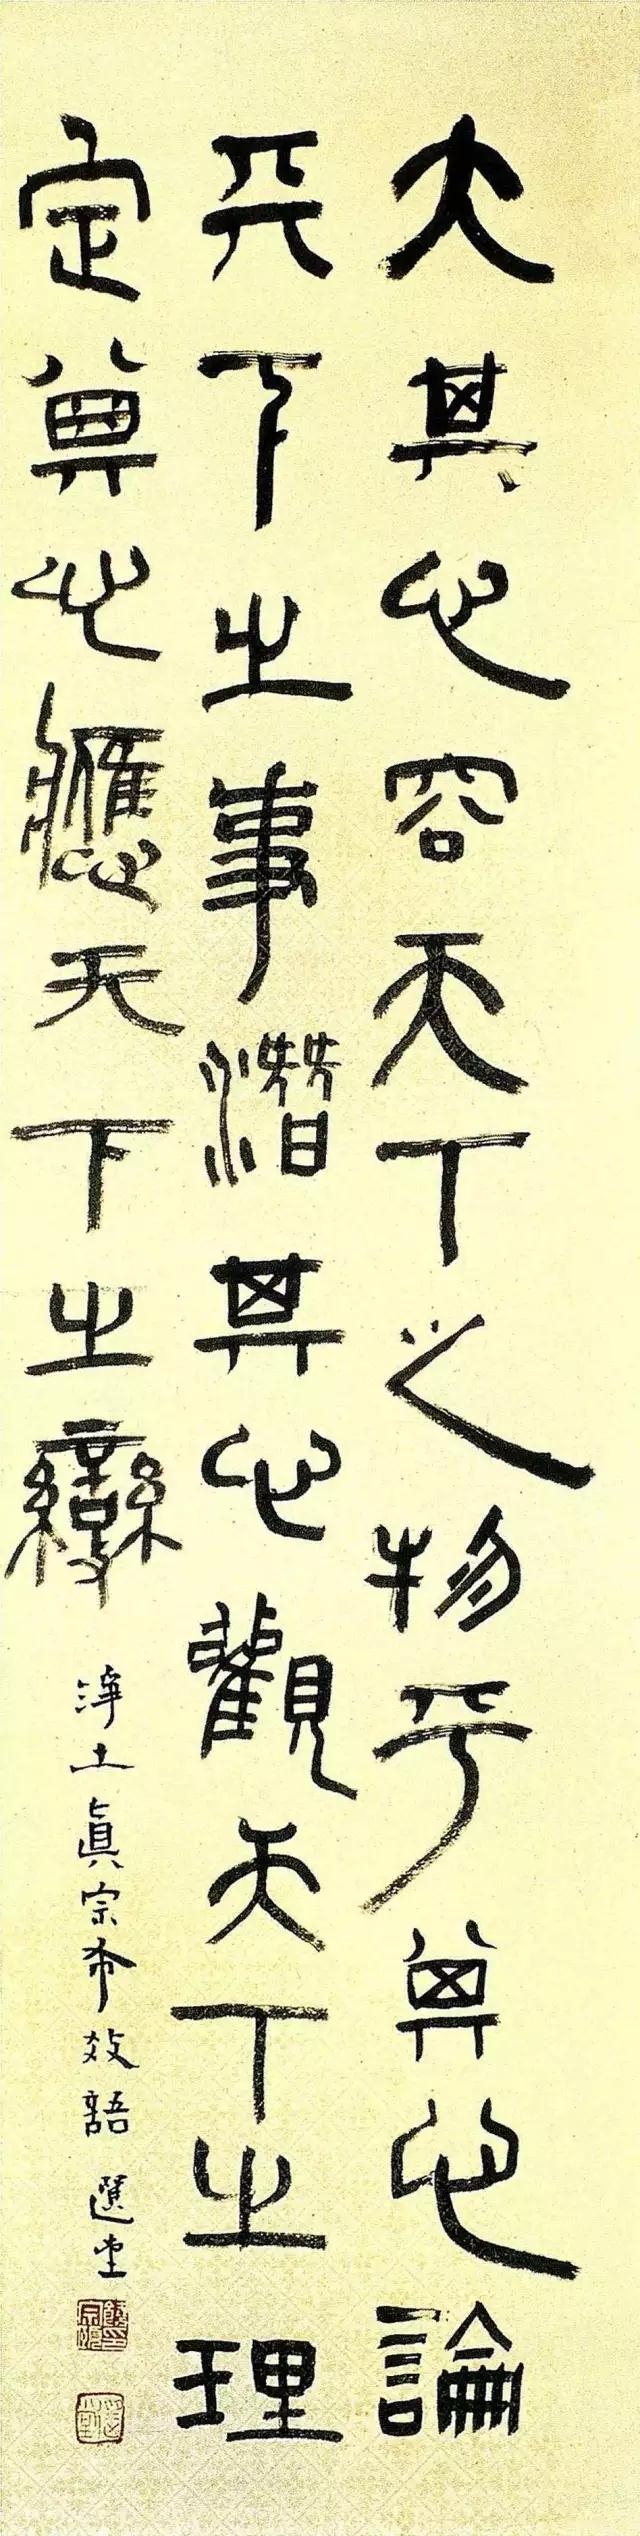 大其心容天下之物平其心論
天下之事潛其心觀天下之理
定其心應天下之變
淨土眞宗布教語 選堂
饒宗頤印